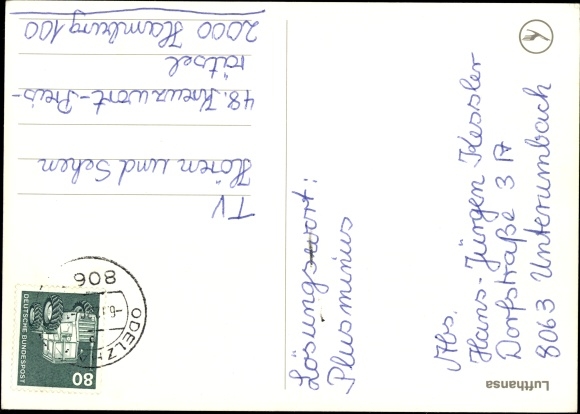 TV
Hören und Sehen
48. Kreuzwort-Preis-
rätsel
2000 Hamburg 100
Lösungswort:
Plusminus
Abs.
Hans-Jürgen Kessler
Dorfstraße 3 A
8063 Unterumbach
Lufthansa
806
ODELZH
DEUTSCHE BUNDESPOST
80